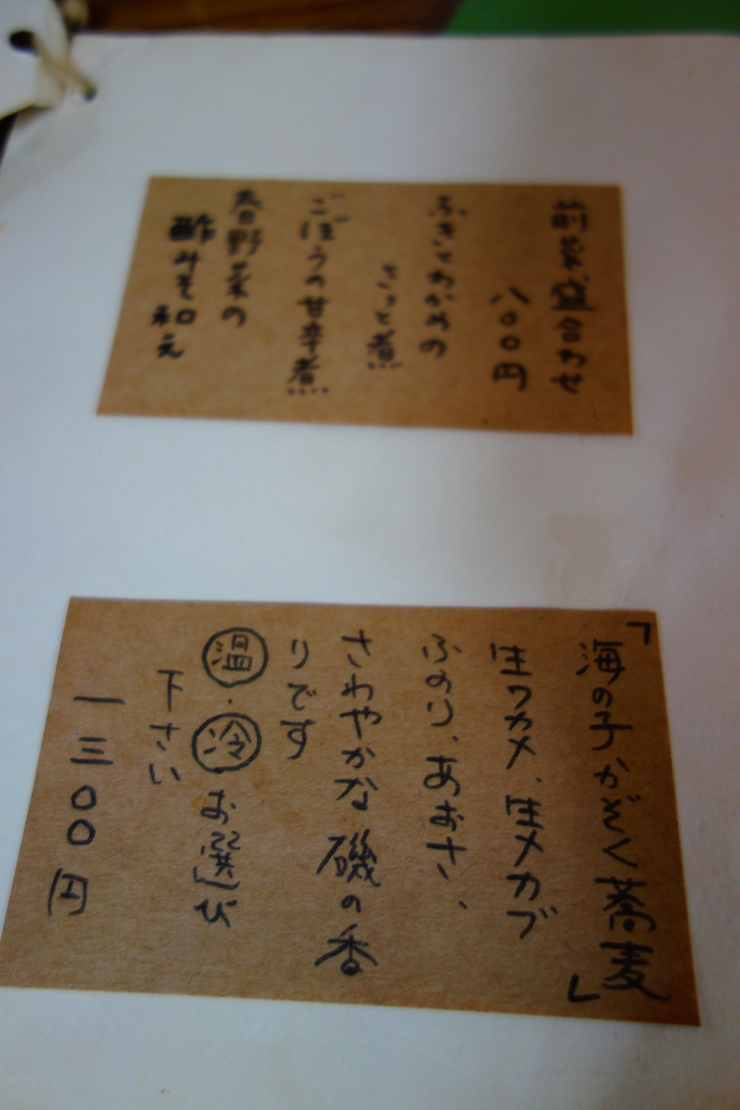 前菜盛合わせ
八〇〇円
ふきとわかめの
さっと煮
ごぼうの甘辛煮
春野菜の
酢みそ和え
「海の子かぞく蕎麦」
生ワカメ、生メカブ
ふのり、あおさ、
さわやかな磯の香
りです
温・冷お選び
下さい
一三〇〇円